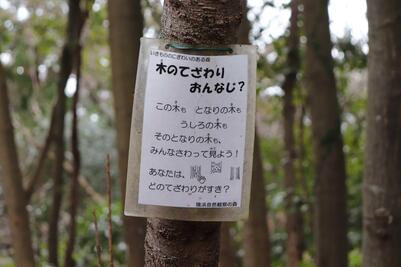 いきもののにぎわいのある森
木のてざわり
おんなじ？
この木も　となりの木も
うしろの木も
そのとなりの木も、
みんなさわって見よう！
あなたは、
どのてざわりがすき？
横浜自然観察の森